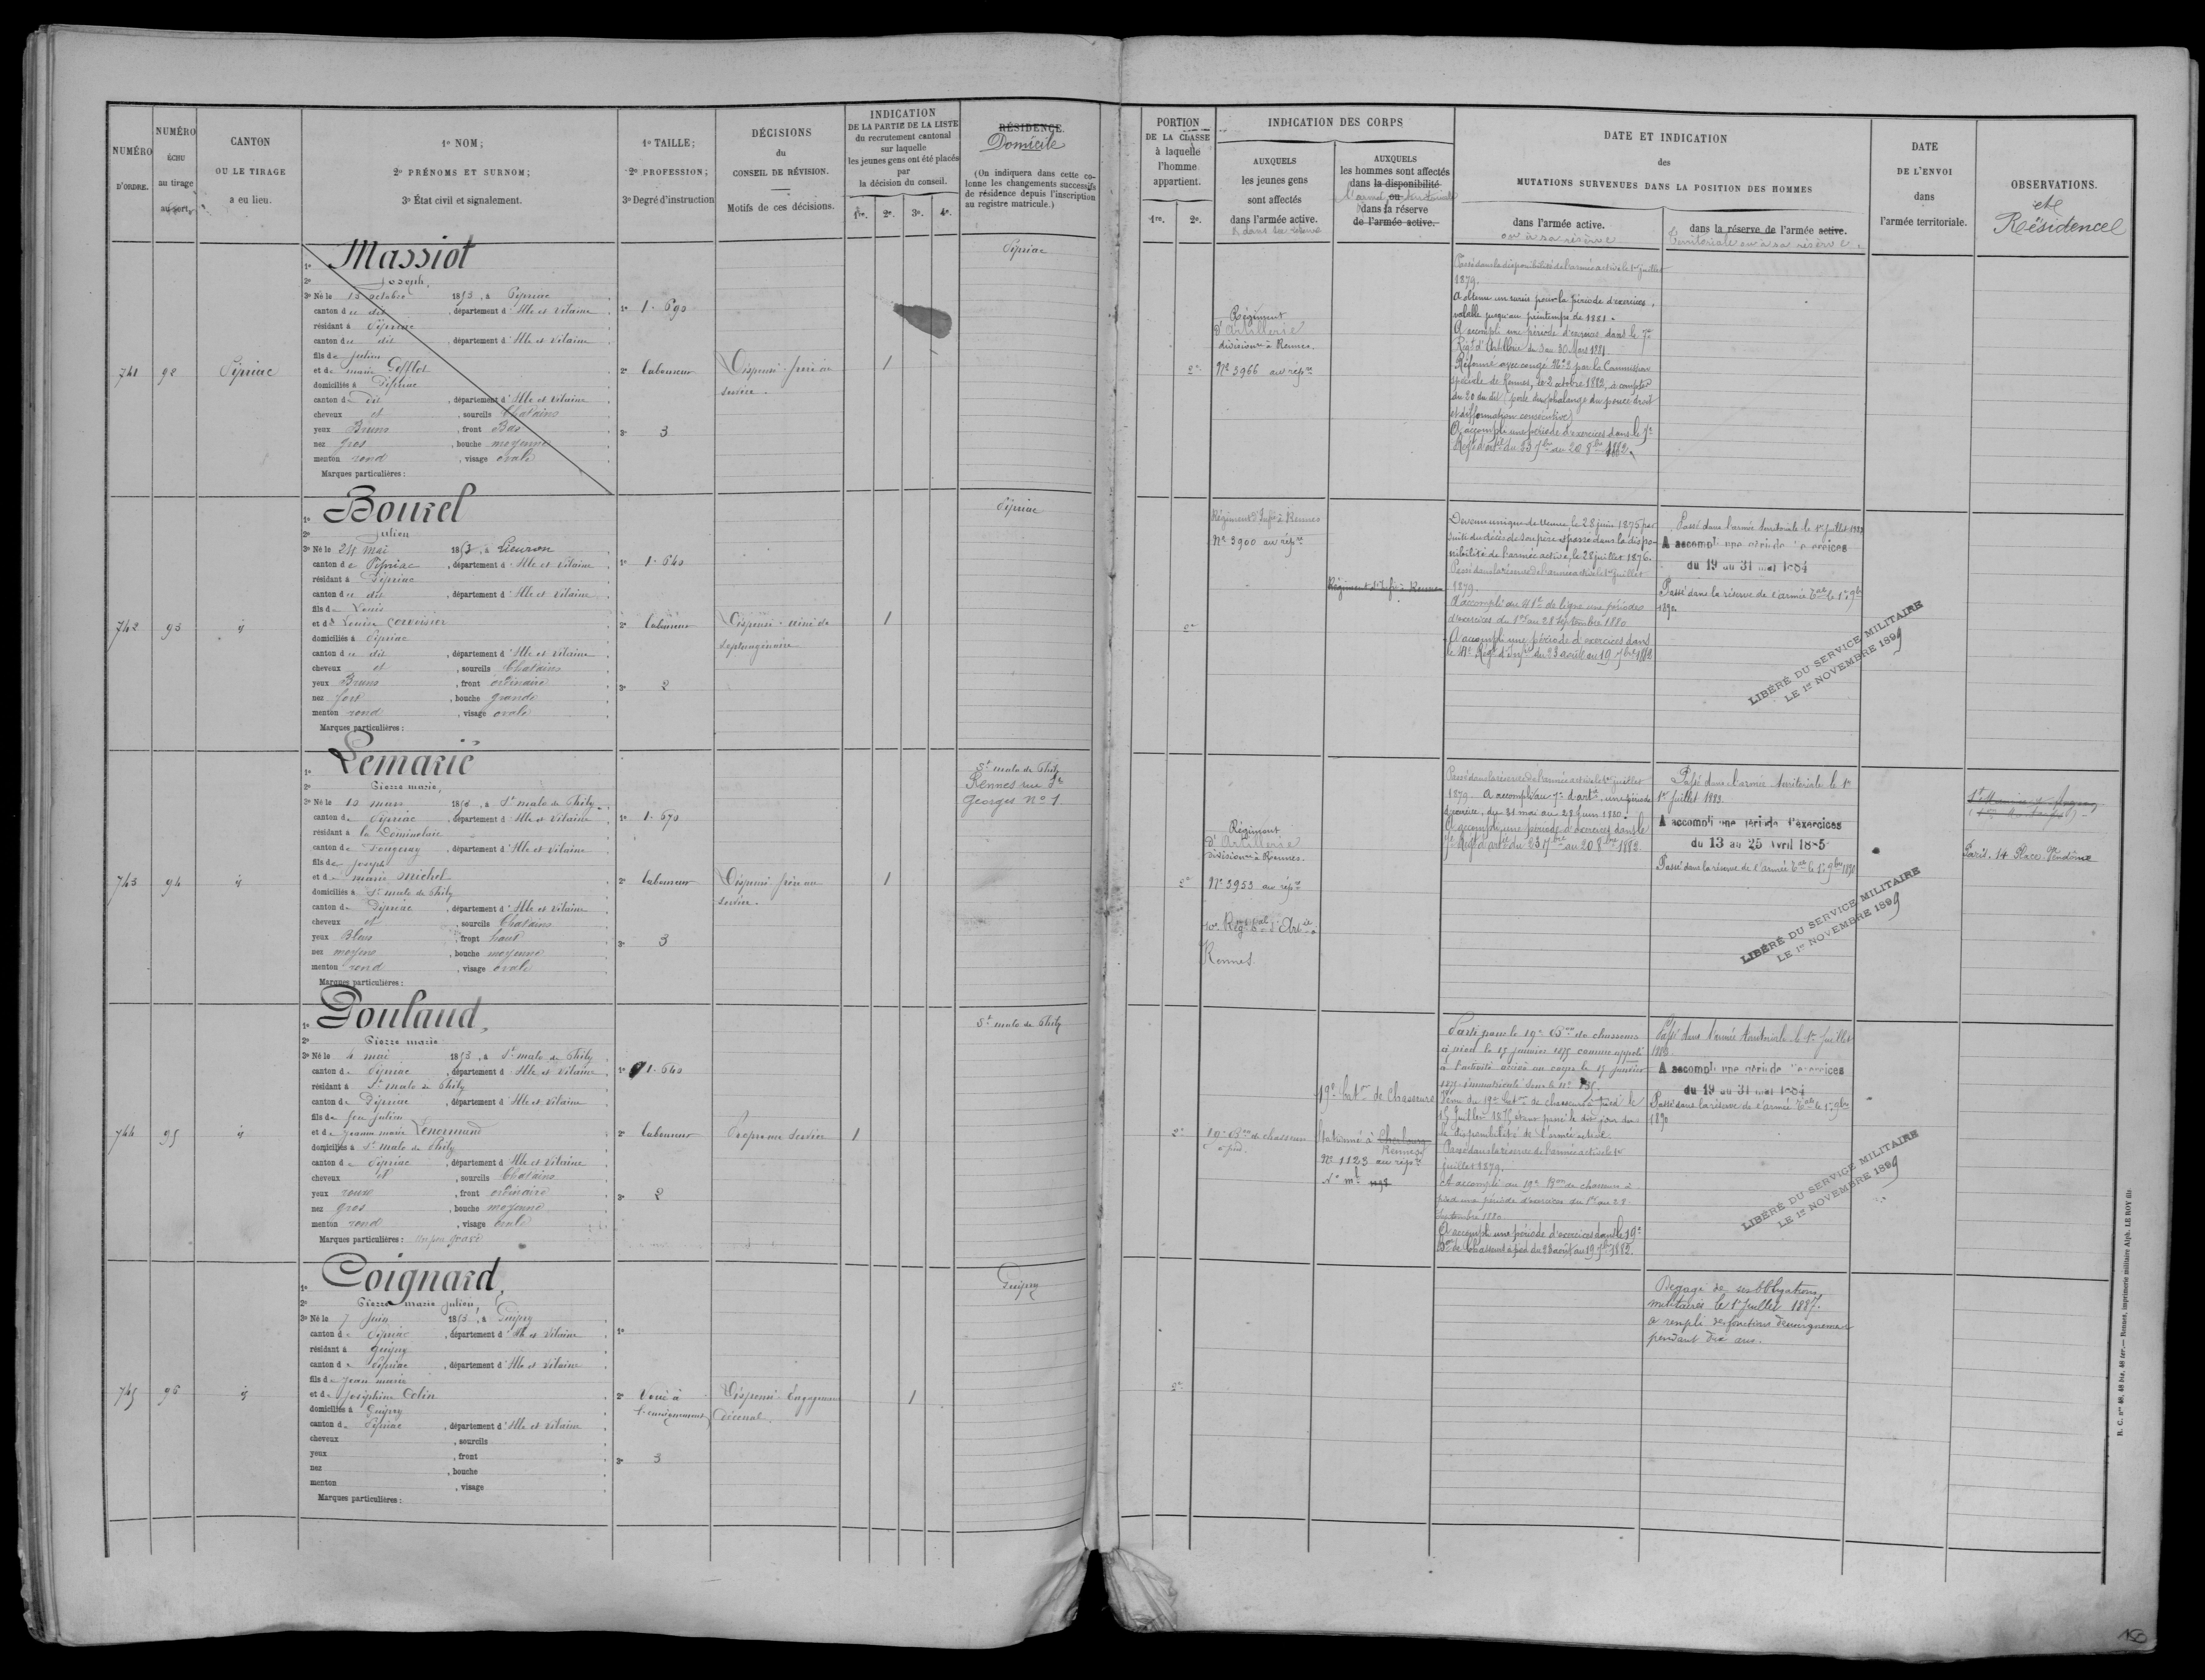 NUMÉRO
D'ORDRE.
NUMÉRO
ÉCHU
au tirage
au sort.
CANTON
OU LE TIRAGE
a eu lieu.
1º NOM;
2º PRÉNOMS ET SURNOM;
3º État civil et signalement.
1º TAILLE;
2º PROFESSION;
3º Degré d'instruction
DÉCISIONS
du
CONSEIL DE RÉVISION.
Motifs de ces décisions.
INDICATION
DE LA PARTIE DE LA LISTE
du recrutement cantonal
sur laquelle
les jeunes gens ont été placés
par
la décision du conseil.
1re. 2e. 3e. 4e.
RÉSIDENCE
Domicile
(On indiquera dans cette co-
lonne les changements successifs
de résidence depuis l'inscription
au registre matricule.)
PORTION
DE LA CLASSE
à laquelle
l'homme
appartient.
1re. 2e.
INDICATION DES CORPS
AUXQUELS
les jeunes gens
sont affectés
dans l'armée active.
& dans sa réserve
AUXQUELS
les hommes sont affectés
dans la disponibilité
l'armée ou territoriale
dans la réserve
de l'armée active.
DATE ET INDICATION
des
MUTATIONS SURVENUES DANS LA POSITION DES HOMMES
dans l'armée active.
ou à sa réserve
dans la réserve de l'armée active.
Territoriale ou à sa réserve
DATE
DE L'ENVOI
dans
l'armée territoriale.
OBSERVATIONS.
et
Résidence
741 92 Pipriac
1º Massiot
2º Joseph,
3º Né le 13 octobre 1853, à Pipriac
canton du dit, département d'Ille et Vilaine
résidant à Pipriac
canton du dit, département d'Ille et Vilaine
fils de Julien
et de marie
domiciliés à Pipriac
canton du dit, département d'Ille et Vilaine
cheveux et, sourcils Chatains
yeux Bruns, front Bas
nez gros, bouche moyenne
menton rond, visage ovale
Marques particulières:
1º 1.690
2º laboureur
3º 3
Dispensé frère au
service.
1
Pipriac
2e
Régiment
d'Artillerie
divisionre à Rennes.
Nº 3966 au répre
Passé dans la disponibilité de l'armée active le 1er juillet
1879.
A obtenu un sursis pour la période d'exercices,
valable jusqu'au printemps de 1881.
A accompli une période d'exercices dans le 7e
Régt d'Artillerie du 3 au 30 Mars 1881
Réformé avec congé Nº 2 par la Commission
spéciale de Rennes, le 2 octobre 1882, à compter
du 20 du dit (perte de phalange du pouce droit
et difformation consécutive)
A accompli une période d'exercices dans le 7e
Régt d'artie du 23 7bre au 20 8bre 1882.
742 93 id
1º Bourel
2º Julien
3º Né le 24 mai 1853, à Lieuron
canton de Pipriac, département d'Ille et Vilaine
résidant à Pipriac
canton du dit, département d'Ille et Vilaine
fils de Louis
et de Louise Corvoisier
domiciliés à Pipriac
canton du dit, département d'Ille et Vilaine
cheveux et, sourcils Chatains
yeux Bruns, front ordinaire
nez fort, bouche grande
menton rond, visage ovale
Marques particulières:
1º 1.640
2º laboureur
3º 2
Dispensé aîné de
septuagénaire
1
Pipriac
2e
Régiment d'Infie à Rennes
Nº 3900 au répre
Régiment d'Infie à Rennes
Devenu unique de veuve, le 28 juin 1875 par
suite du décès de son père et passé dans la dispo-
nibilité de l'armée active, le 28 juillet 1876.
Passé dans la réserve de l'armée active le 1er juillet
1879.
A accompli au 41e de ligne une période
d'exercices du 1er au 28 Septembre 1880
A accompli une période d'exercices dans
Passé dans l'armée territoriale le 1er juillet 1883
A accompli une période d'exercices
du 19 au 31 mai 1884
Passé dans la réserve de l'armée tale le 1er 9bre
1890
LIBÉRÉ DU SERVICE MILITAIRE
LE 1er NOVEMBRE 1899
743 94 id
1º Lemarié
2º Pierre marie,
3º Né le 10 mars 1853, à St malo de Phily
canton de Pipriac, département d'Ille et Vilaine
résidant à la Dominelais
canton de Fougeray, département d'Ille et Vilaine
fils de Joseph
et de marie Michel
domiciliés à St malo de Phily
canton de Pipriac, département d'Ille et Vilaine
cheveux et, sourcils Chatains
yeux Bleus, front haut
nez moyen, bouche moyenne
menton rond, visage ovale
Marques particulières:
1º 1.670
2º laboureur
3º 3
Dispensé frère au
service.
1
St malo de Phily
Rennes rue St
Georges Nº 1.
2e
Régiment
d'Artillerie
divisionre à Rennes.
Nº 3953 au répre
10e Régt tal d'Artie à
Rennes.
Passé dans la réserve de l'armée active le 1er juillet
1879. A accompli au 7e d'artie, une période
d'exercice, du 31 mai au 28 juin 1880.
A accompli une période d'exercices dans le
7e Régt d'artie du 23 7bre au 20 8bre 1882.
Passé dans l'armée territoriale le 1er
1er juillet 1883.
A accompli une période d'exercices
du 13 au 25 Avril 1885
Passé dans la réserve de l'armée tale le 1er 9bre 1890
LIBÉRÉ DU SERVICE MILITAIRE
LE 1er NOVEMBRE 1899
Paris. 14 Place Vendôme
744 95 id
1º Poulaud,
2º Pierre marie
3º Né le 4 mai 1853, à St malo de Phily
canton de Pipriac, département d'Ille et Vilaine
résidant à St malo de Phily
canton de Pipriac, département d'Ille et Vilaine
fils de feu Julien
et de Jeanne marie Lenormand
domiciliés à St malo de Phily
canton de Pipriac, département d'Ille et Vilaine
cheveux et, sourcils Chatains
yeux roux, front ordinaire
nez gros, bouche moyenne
menton rond, visage ovale
Marques particulières: un peu gravé
1º 1.640
2º laboureur
3º 2
Propre au service
1
St malo de Phily
2e
19e Bon de chasseurs
à pied.
19e Batn de Chasseurs
Stationné à Cherbourg
Rennes
Nº 1123 au répre
Nº mle
Parti pour le 19e Bon de chasseurs
à pied le 15 janvier 1875 comme appelé
à l'activité arrivé au corps le 15 janvier
1875 immatriculé sous le nº
Venu du 19e Batn de chasseurs à pied le
15 Juillet 1875, et est passé le dit jour dans
la disponibilité de l'armée active.
Passé dans la réserve de l'armée active le 1er
juillet 1879.
A accompli au 19e Bon de chasseurs à
pied une période d'exercices du 1er au 28
Septembre 1880.
A accompli une période d'exercices dans le 19e
Bon de Chasseurs à pied du 23 août au 19 7bre 1882.
Passé dans l'armée territoriale le 1er Juillet
1883.
A accompli une période d'exercices
du 19 au 31 mai 1884
Passé dans la réserve de l'armée tale le 1er 9bre
1890
LIBÉRÉ DU SERVICE MILITAIRE
LE 1er NOVEMBRE 1899
745 96 id
1º Coignard,
2º Pierre marie Julien,
3º Né le 7 juin 1853, à Guipry
canton de Pipriac, département d'Ille et Vilaine
résidant à Guipry
canton de Pipriac, département d'Ille et Vilaine
fils de Jean marie
et de Joséphine Colin
domiciliés à Guipry
canton de Pipriac, département d'Ille et Vilaine
cheveux, sourcils
yeux, front
nez, bouche
menton, visage
Marques particulières:
1º
2º Voué à
l'enseignement
3º 3
Dispensé Engagement
décennal.
1
Guipry
2e
Dégagé de ses obligations
militaires le 1er Juillet 1887.
a rempli des fonctions d'enseignement
pendant dix ans.
R. C. nos 48, 48 bis, 48 ter. — Rennes, imprimerie militaire Alph. LE ROY fils
150